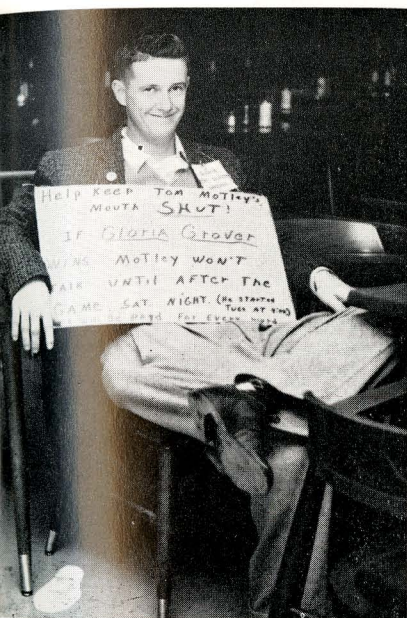 Help Keep Tom Motley's
Mouth SHUT!
IF Gloria Grover
WINS Motley WON'T
TALK UNTIL AFTER The
GAME SAT. NIGHT. (He STARTED
TUES AT
Be Payd For Every Word